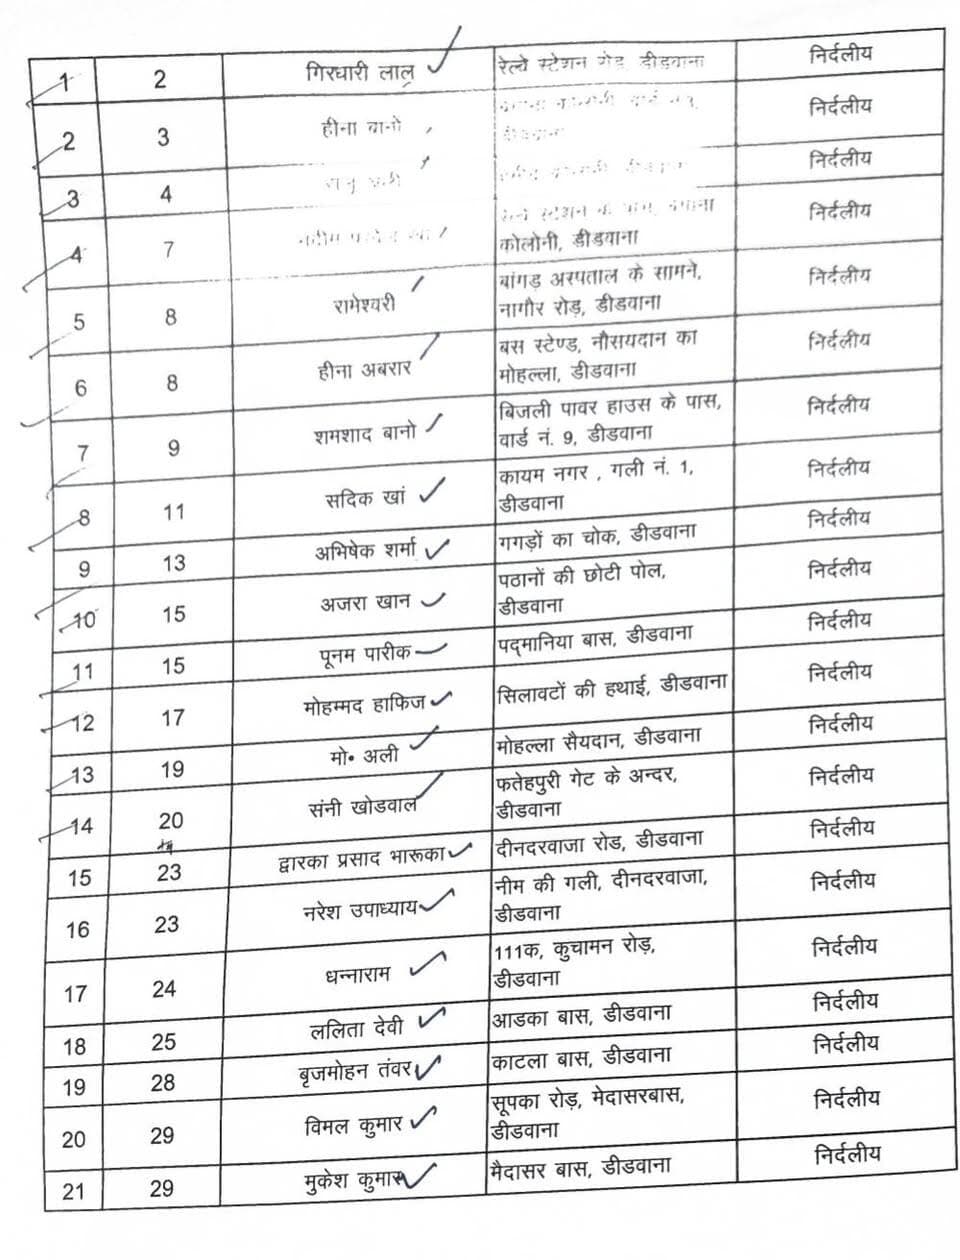 1 2 गिरधारी लाल रेल्वे स्टेशन रोड, डीडवाना निर्दलीय
2 3 हीना बानो निर्दलीय
डीडवाना
3 4 निर्दलीय
4 7 रेल्वे स्टेशन के पास, निर्दलीय
कोलोनी, डीडवाना
5 8 रामेश्वरी बांगड़ अस्पताल के सामने, निर्दलीय
नागौर रोड़, डीडवाना
6 8 हीना अबरार बस स्टेण्ड, नौसयदान का निर्दलीय
मोहल्ला, डीडवाना
7 9 शमशाद बानो बिजली पावर हाउस के पास, निर्दलीय
वार्ड नं. 9, डीडवाना
8 11 सदिक खां कायम नगर , गली नं. 1, निर्दलीय
डीडवाना
9 13 अभिषेक शर्मा गगड़ों का चोक, डीडवाना निर्दलीय
10 15 अजरा खान पठानों की छोटी पोल, निर्दलीय
डीडवाना
11 15 पूनम पारीक पद्मानिया बास, डीडवाना निर्दलीय
12 17 मोहम्मद हाफिज सिलावटों की हथाई, डीडवाना निर्दलीय
13 19 मो॰ अली मोहल्ला सैयदान, डीडवाना निर्दलीय
14 20 संनी खोडवाल फतेहपुरी गेट के अन्दर, निर्दलीय
डीडवाना
15 23 द्वारका प्रसाद भारूका दीनदरवाजा रोड, डीडवाना निर्दलीय
16 23 नरेश उपाध्याय नीम की गली, दीनदरवाजा, निर्दलीय
डीडवाना
17 24 धन्नाराम 111क, कुचामन रोड़, निर्दलीय
डीडवाना
18 25 ललिता देवी आडका बास, डीडवाना निर्दलीय
19 28 बृजमोहन तंवर काटला बास, डीडवाना निर्दलीय
20 29 विमल कुमार सूपका रोड़, मेदासरबास, निर्दलीय
डीडवाना
21 29 मुकेश कुमार मैदासर बास, डीडवाना निर्दलीय